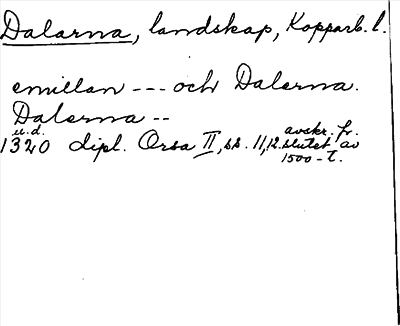 Dalarna, landskap, Kopparb. l.
emillan --- och Dalarna.
Dalarna --
u.d.
1320 dipl. Orsa II, ss. 11, 12. avskr. fr. slutet av 1500-t.